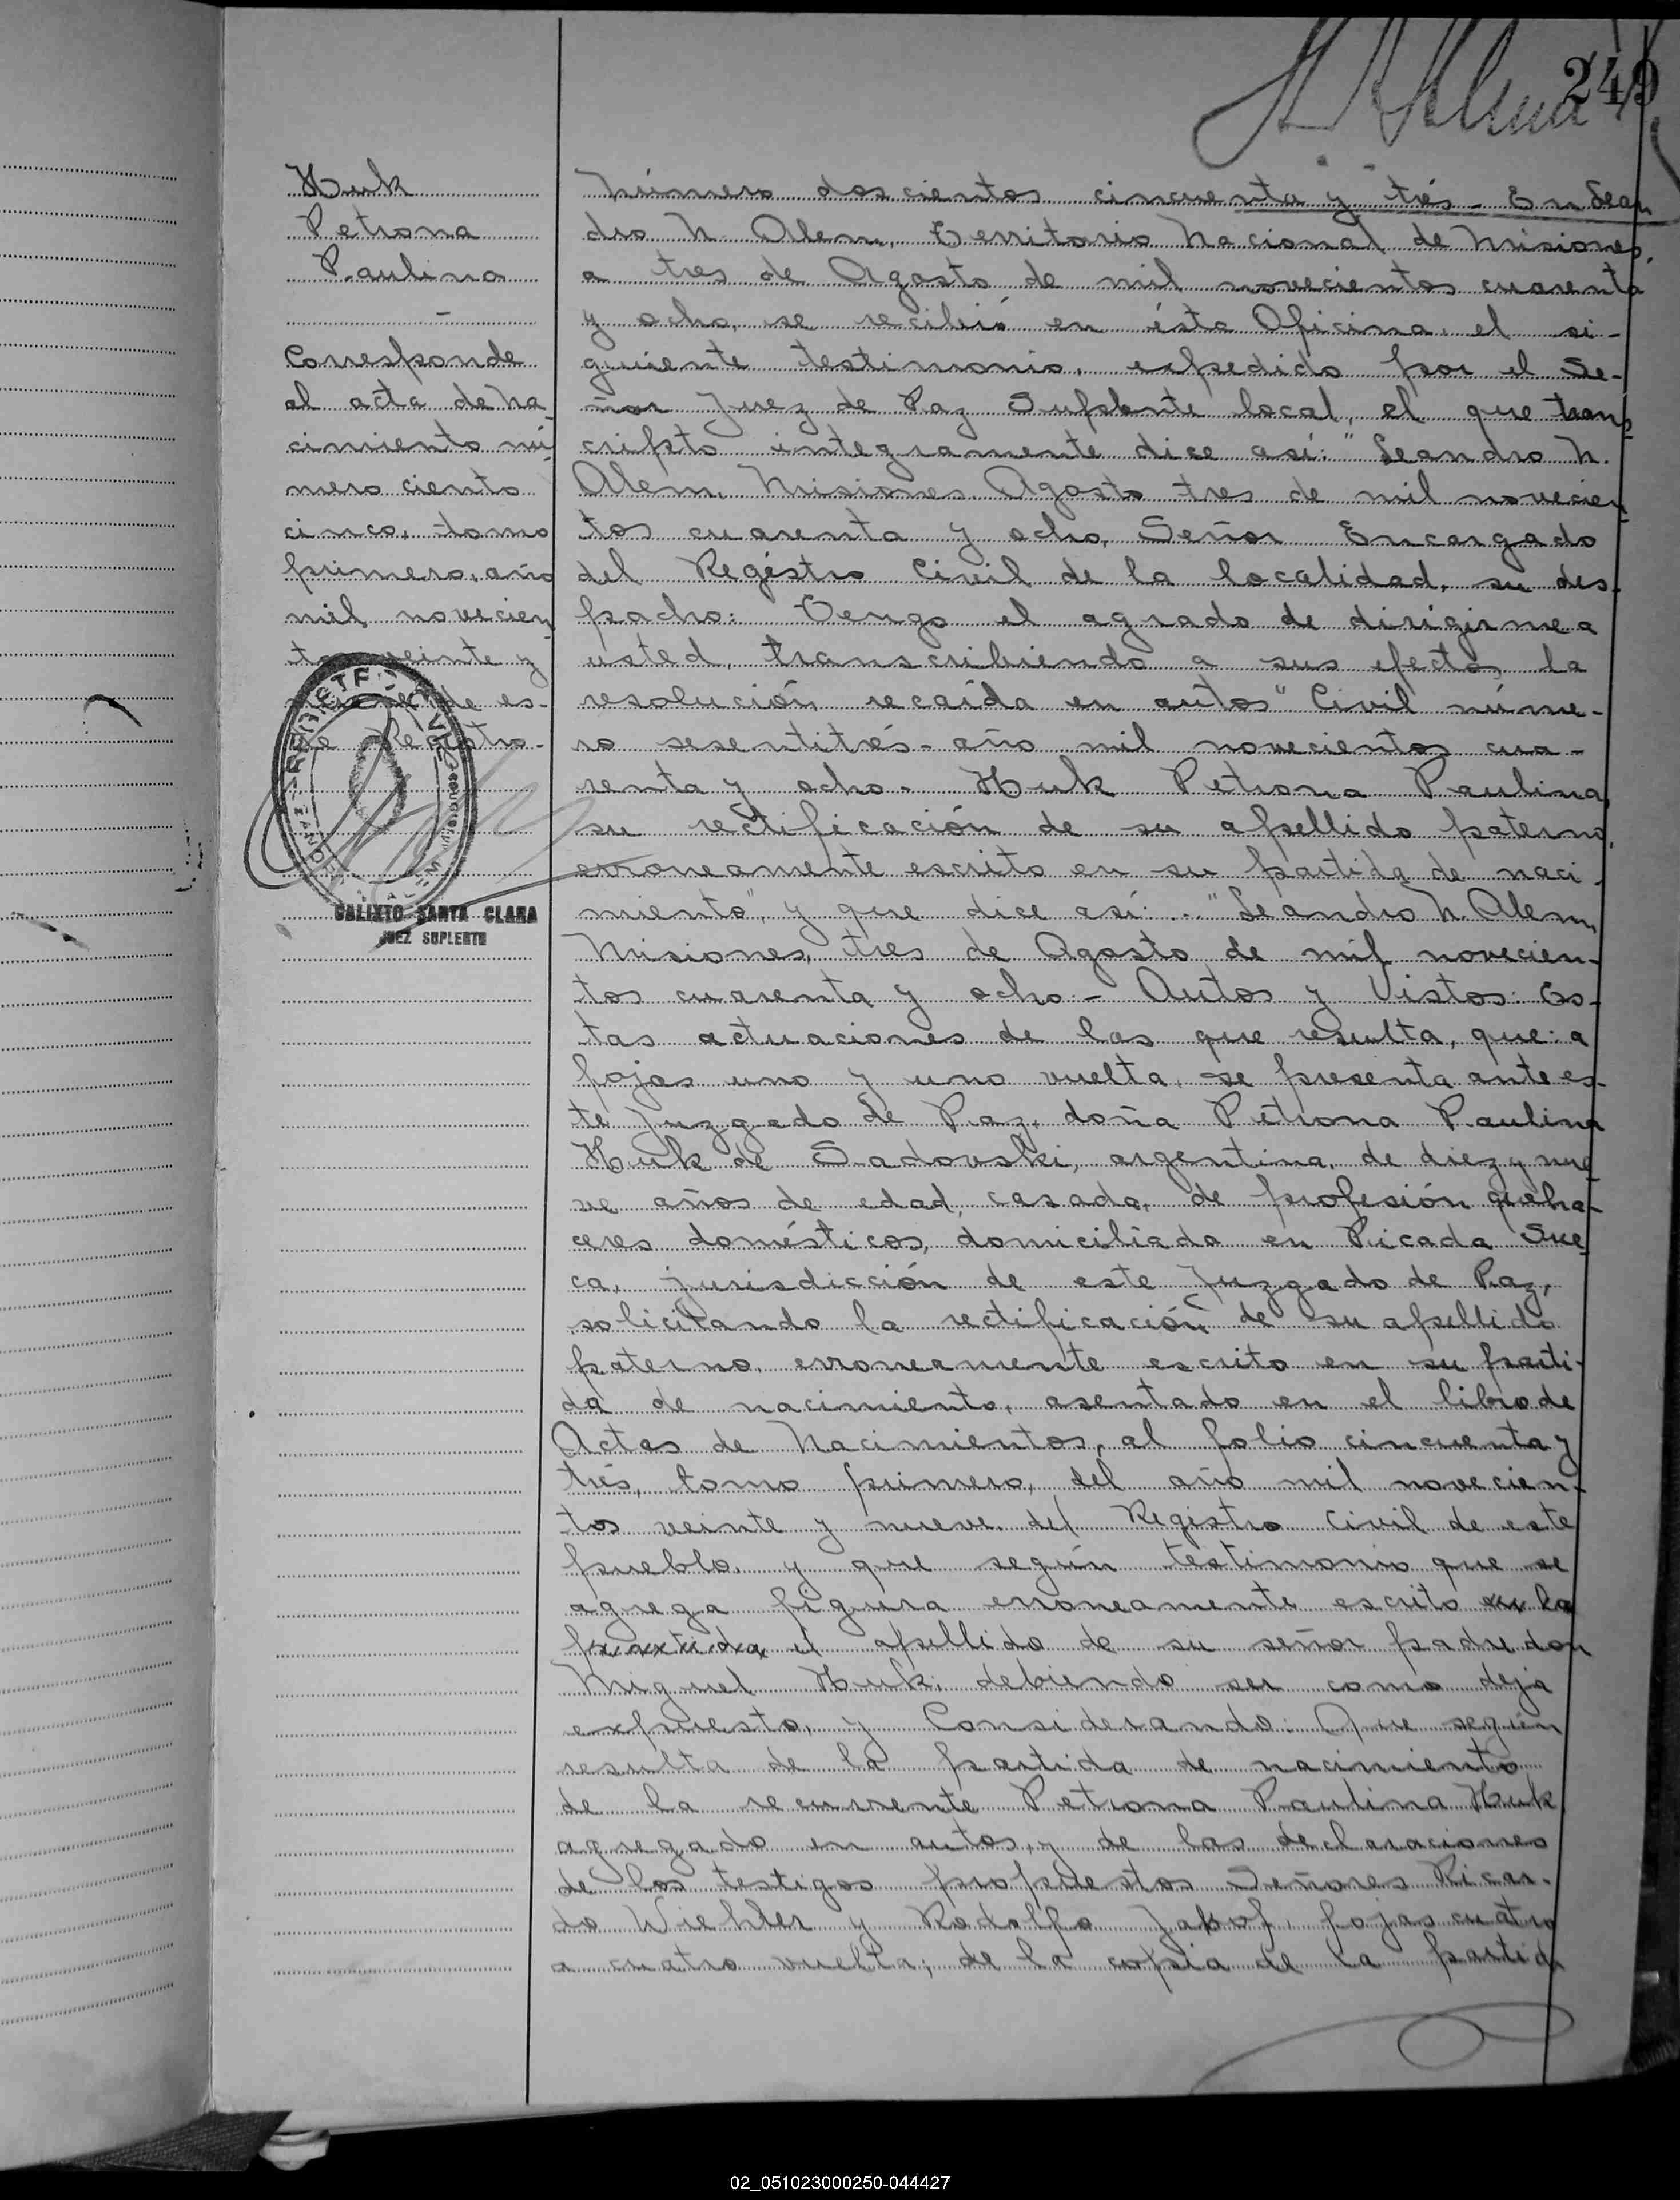 249
Huk
Petrona
Paulina
-
Corresponde
al acta de na-
cimiento nú-
mero ciento
cinco, tomo
primero, año
mil novecien
tos veinte y
nueve de es-
te Registro.
CALIXTO SANTA CLARA
JUEZ SUPLENTE
Número doscientos cincuenta y trés - En Lean
dro N. Alem, Territorio Nacional de Misiones,
a tres de Agosto de mil novecientos cuarenta
y ocho, se recibió en ésta Oficina, el si-
guiente testimonio, expedido por el Se-
ñor Juez de Paz Suplente local, el que trans-
cripto integramente dice así: "Leandro N.
Alem, Misiones, Agosto tres de mil novecien-
tos cuarenta y ocho, Señor Encargado
del Registro Civil de la localidad, su des-
pacho: Tengo el agrado de dirigirme a
usted, transcribiendo a sus efectos, la
resolución recaída en autos "Civil núme-
ro sesentitrés - año mil novecientos cua-
renta y ocho - Huk Petrona Paulina,
su rectificación de su apellido paterno,
erroneamente escrito en su partida de naci-
miento", y que dice así: ..."Leandro N. Alem,
Misiones, tres de Agosto de mil novecien-
tos cuarenta y ocho - Autos y Vistos: Es-
tas actuaciones de las que resulta, que: a
fojas uno y uno vuelta, se presenta ante es-
te Juzgado de Paz, doña Petrona Paulina
Huk de Sadovski, argentina, de diez y nue-
ve años de edad, casada, de profesión queha-
ceres domésticos, domiciliada en Picada Sue-
ca, jurisdicción de este Juzgado de Paz,
solicitando la rectificación de su apellido
paterno, erroneamente escrito en su parti-
da de nacimiento, asentado en el libro de
Actas de Nacimientos, al folio cincuenta y
trés, tomo primero, del año mil novecien-
tos veinte y nueve, del Registro Civil de este
pueblo, y que según testimonio que se
agrega figura erroneamente escrito en la
partida el apellido de su señor padre don
Miguel Huk, debiendo ser como deja
expuesto, y Considerando: Que según
resulta de la partida de nacimiento
de la recurrente Petrona Paulina Huk
agregado en autos, y de las declaraciones
de los testigos propuestos Señores Ricar-
do Wiehler y Rodolfo Jakof, fojas cuatro
a cuatro vuelta; de la copia de la partida
02_051023000250-044427